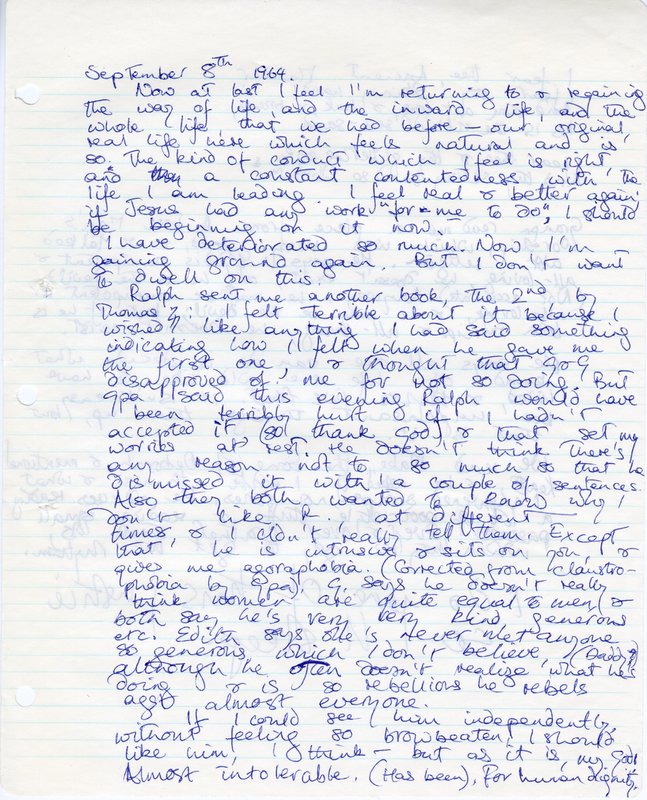 September 8th 1964.
Now at last I feel I'm returning to & regaining
the way of life, and the inward life, and the
whole life, that we had before – our original,
real life here which feels natural and is
so. The kind of conduct which I feel is right,
and a constant contentedness with the
life I am leading. I feel real & better again;
if Jesus had any work "for me to do", I should
be beginning on it now.
I have deteriorated so much. Now I'm
gaining ground again. But I don't want
to dwell on this.
Ralph sent me another book, the 2nd by
Thomas; I felt terrible about it because I
wished like anything I had said something
indicating how I felt when he gave me
the first one, & thought that G & G
disapproved of me for not so doing. But
Gpa said this evening Ralph would have
been terribly hurt if I hadn't
accepted it (so thank God) & that set my
worries at rest. He doesn't think there's
any reason not to so much so that he
dismissed it with a couple of sentences.
Also they both wanted to know why I
don't like R. – at different –
times, & I didn't really tell them. Except
that he is intrusive & sits on you, &
gives me agoraphobia. (Corrected from claustro-
phobia by Gpa). G. says he doesn't really
think women are quite equal to men &
both say he's very very kind, generous
etc. Edith says she's never met anyone
so generous which I don't believe (Daddy?)
although he often doesn't realize what he's
doing & is so rebellious he rebels
agst almost everyone.
If I could see him independently,
without feeling so browbeaten, I should
like him, I think – but as it is, my God!
Almost intolerable. (Has been). For human dignity.